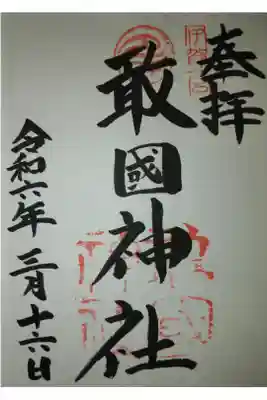 奉拝
伊賀一宮
敢國神社
令和六年三月十六日